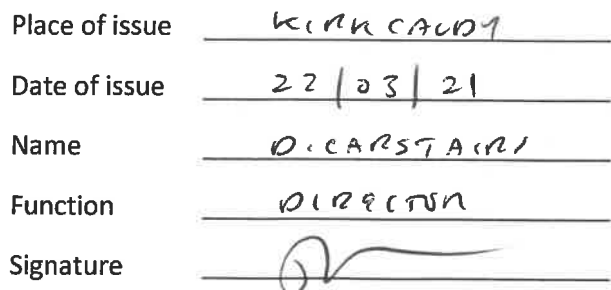 Place of issue KIRKCALDY
Date of issue 22/03/21
Name D. CARSTAIRS
Function DIRECTOR
Signature